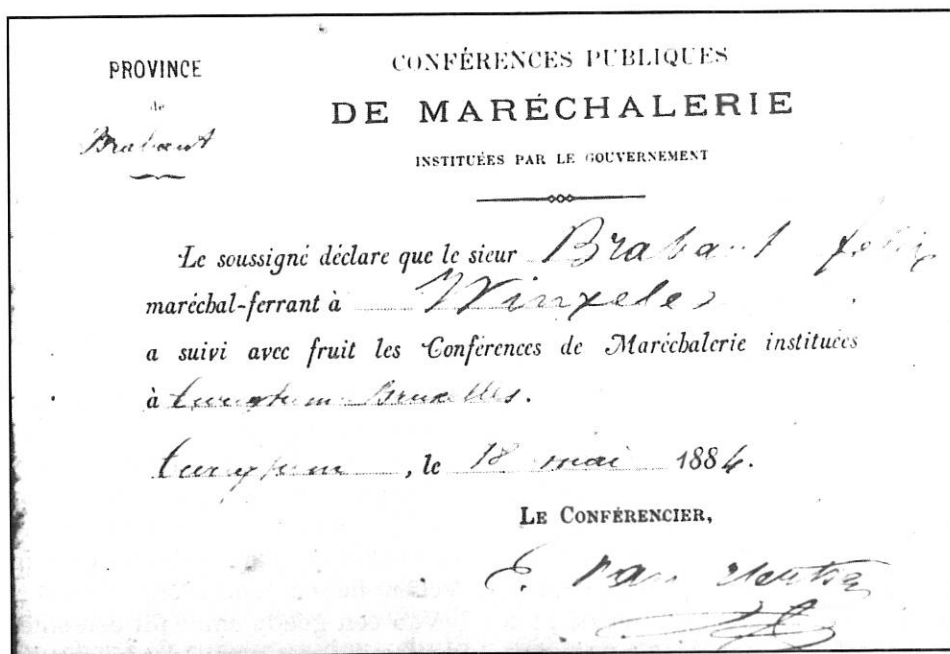 PROVINCE
de
Brabant
CONFÉRENCES PUBLIQUES
DE MARÉCHALERIE
INSTITUÉES PAR LE GOUVERNEMENT
Le soussigné déclare que le sieur Brabant félix
maréchal-ferrant à Winxele
a suivi avec fruit les Conférences de Maréchalerie instituées
à Bruxelles.
, le 18 mai 1884.
LE CONFÉRENCIER,
E. Van